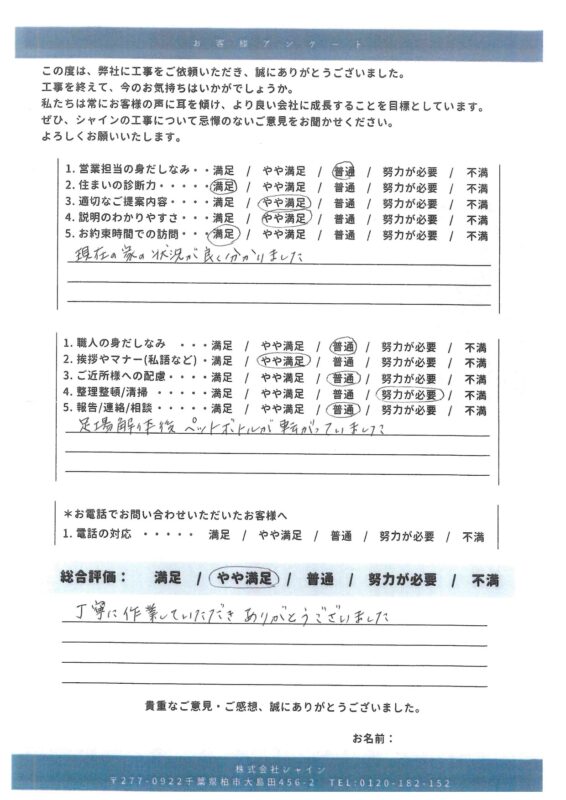 お客様アンケート
この度は、弊社に工事をご依頼いただき、誠にありがとうございました。
工事を終えて、今のお気持ちはいかがでしょうか。
私たちは常にお客様の声に耳を傾け、より良い会社に成長することを目標としています。
ぜひ、シャインの工事について忌憚のないご意見をお聞かせください。
よろしくお願いいたします。
1. 営業担当の身だしなみ・・満足 / やや満足 / 普通 / 努力が必要 / 不満
2. 住まいの診断力・・・・・満足 / やや満足 / 普通 / 努力が必要 / 不満
3. 適切なご提案内容・・・・満足 / やや満足 / 普通 / 努力が必要 / 不満
4. 説明のわかりやすさ・・・満足 / やや満足 / 普通 / 努力が必要 / 不満
5. お約束時間での訪問・・・満足 / やや満足 / 普通 / 努力が必要 / 不満
現在の家の状況が良く分かりました
1. 職人の身だしなみ ・・・満足 / やや満足 / 普通 / 努力が必要 / 不満
2. 挨拶やマナー(私語など)・満足 / やや満足 / 普通 / 努力が必要 / 不満
3. ご近所様への配慮・・・・満足 / やや満足 / 普通 / 努力が必要 / 不満
4. 整理整頓/清掃 ・・・・・満足 / やや満足 / 普通 / 努力が必要 / 不満
5. 報告/連絡/相談・・・・・満足 / やや満足 / 普通 / 努力が必要 / 不満
足場解体後 ペットボトルが転がっていました
＊お電話でお問い合わせいただいたお客様へ
1. 電話の対応 ・・・・・ 満足 / やや満足 / 普通 / 努力が必要 / 不満
総合評価： 満足 / やや満足 / 普通 / 努力が必要 / 不満
丁寧に作業していただき ありがとうございました
貴重なご意見・ご感想、誠にありがとうございました。
お名前：
株式会社シャイン
〒277-0922千葉県柏市大島田456-2 TEL:0120-182-152